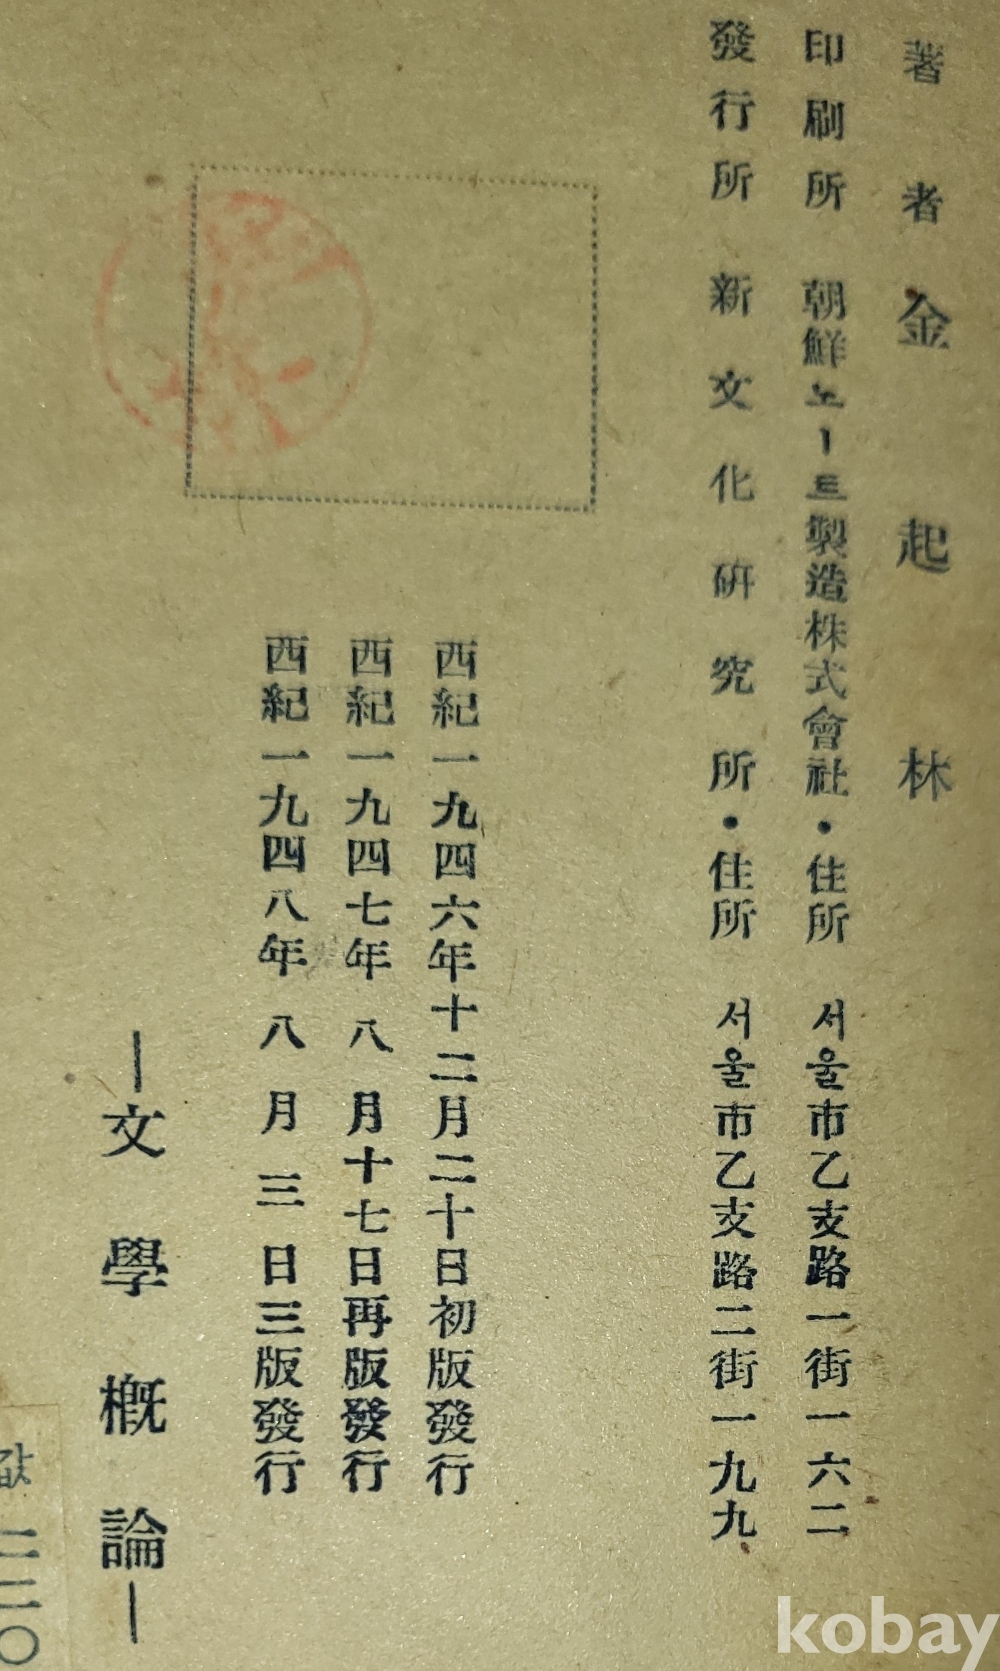 著者 金起林
印刷所 朝鮮노ート製造株式會社・住所 서울市乙支路一街一六二
發行所 新文化硏究所・住所 서울市乙支路二街一九九
西紀一九四六年十二月二十日初版發行
西紀一九四七年八月十七日再版發行
西紀一九四八年八月三日三版發行
—文學槪論—
값 二二〇
kobay